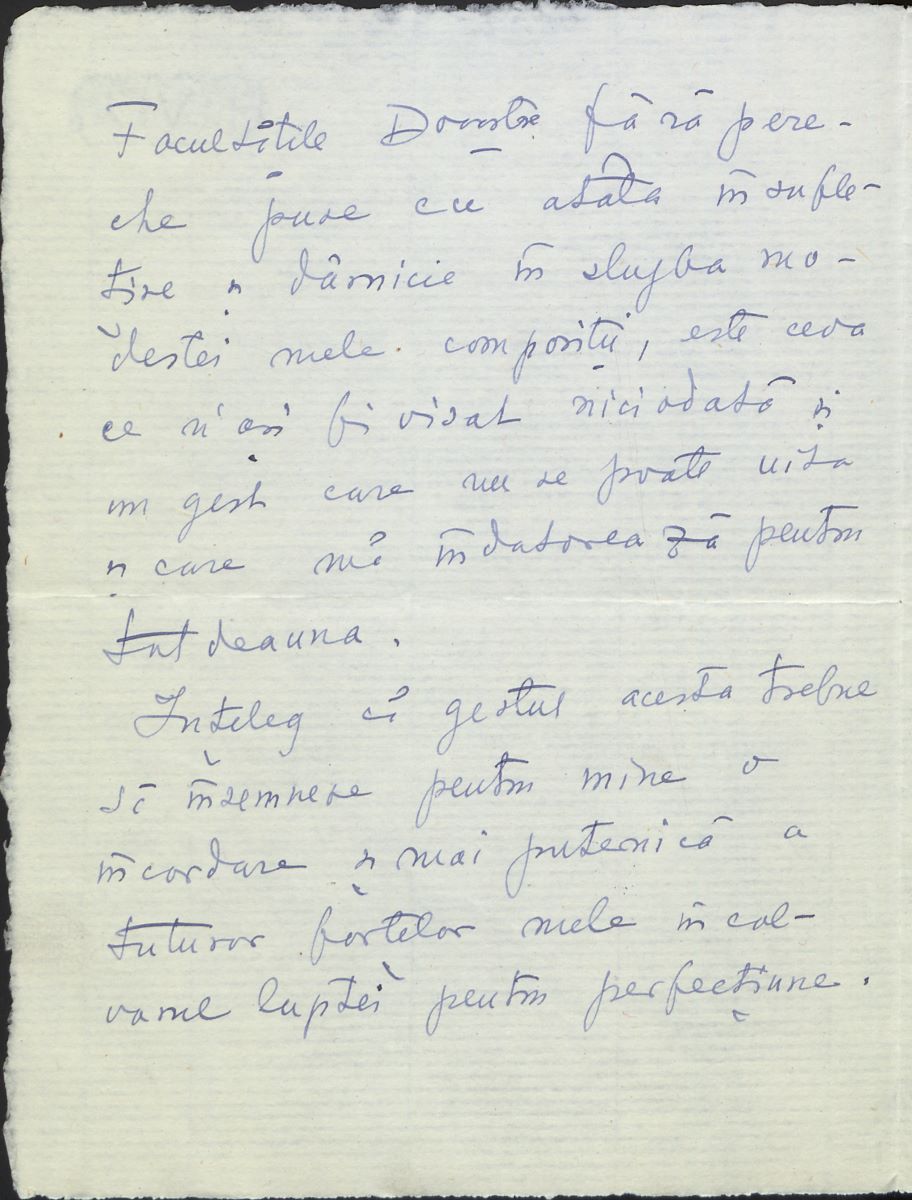 Facultățile Dvoastre fără pere-
che puse cu atâta însufle-
țire și dărnicie în slujba mo-
destei mele compoziții, este ceva
ce n'ași fi visat niciodată și
un gest care nu se poate uita
și care mă îndatorează pentru
totdeauna.
Înțeleg că gestul acesta trebue
să însemneze pentru mine o
încordare și mai puternică a
tuturor forțelor mele în cal-
varul luptei pentru perfecțiune.